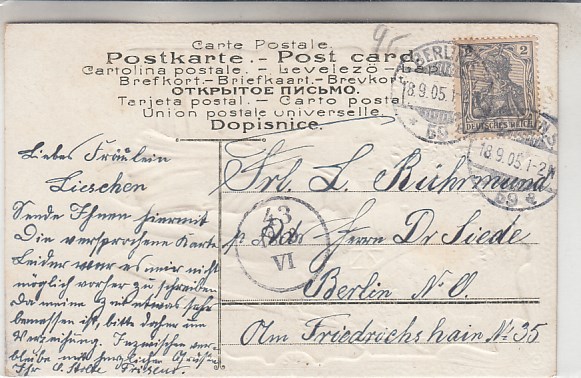 Carte Postale.
Postkarte.- Post card.
Cartolina postale. - Levelező-
Brefkort.- Briefkaart.- Brevkort.
ОТКРЫТОЕ ПИСЬМО.
Tarjeta postal. - Carto postal.
Union postale universelle.
Dopisnice.
BERLIN
18.9.05.1-
59
2
DEUTSCHES REICH
BERLIN S
18.9.05.1-2N
59 a
43
VI
Liebes Fräulein
Lieschen
Sende Ihnen hiermit
Die versprochene Karte
Leider war es mir nicht
möglich vorher zu schreiben
Da meine Zeit etwas sehr
bemessen ist, bitte daher um
Verzeihung. Inzwischen ver-
bleibe mit herzlicher Gruß
Ihr
Friseur.
Frl. L. Rührmund
p. Adr. Herrn Dr Siede
Berlin N.O.
Am Friedrichshain No 35